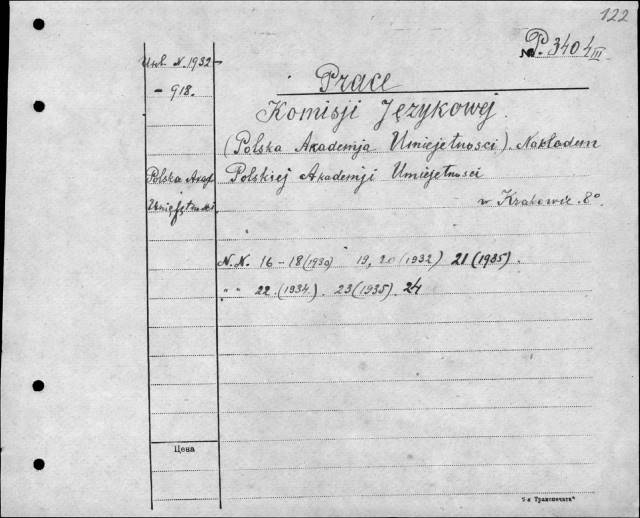 122
№ P. 3404 III
Инв. N. 1932 –
– 918.
Prace
Komisji Językowej.
(Polska Akademja Umiejętności). Nakładem
Polska Akad.
Umiejętności
Polskiej Akademji Umiejętności
w Krakowie. 8°
N.N. 16–18 (1930) 19, 20 (1932) 21 (1935).
" " 22 (1934). 23 (1935). 24
Цена
"5-я Транспечать"